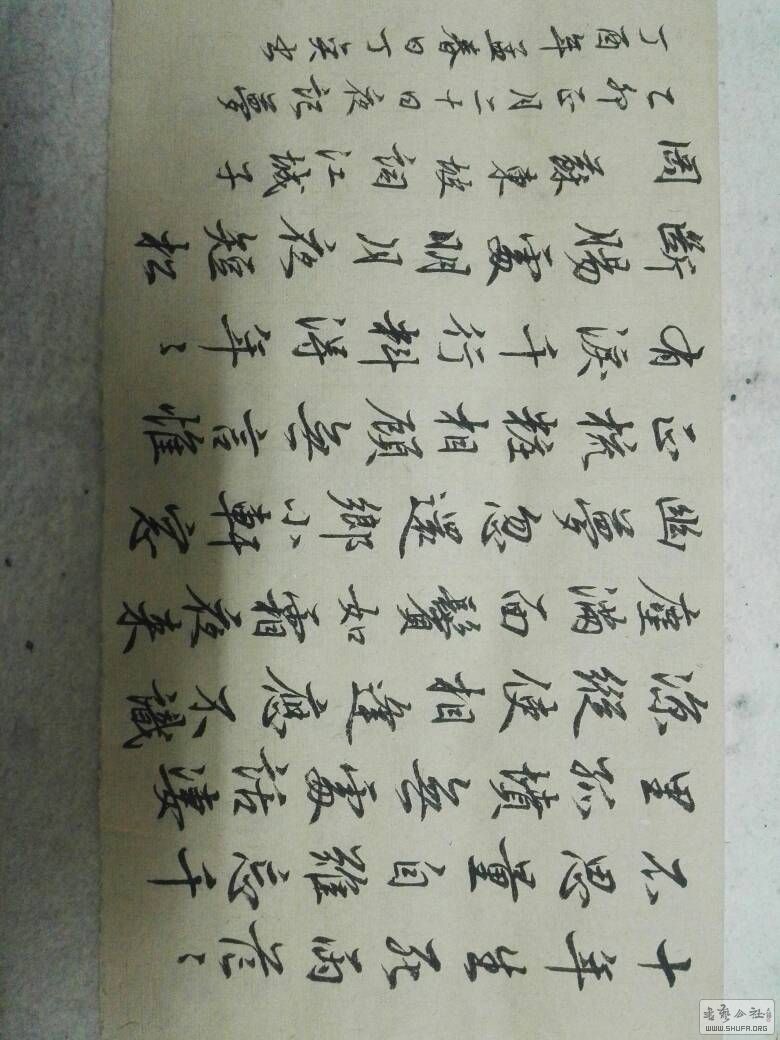 十年生死兩茫〻
不思量自難忘千
里孤墳無處話淒
涼縱使相逢應不識
塵滿面鬢如霜夜來
幽夢忽還鄉小軒窗
正梳粧相顧無言惟
有淚千行料得年〻
斷腸處明月夜短松
岡 蘇東坡詞江城子
乙卯正月二十日夜記夢
丁酉年孟春日丁
書藝公社
WWW.SHUFA.ORG